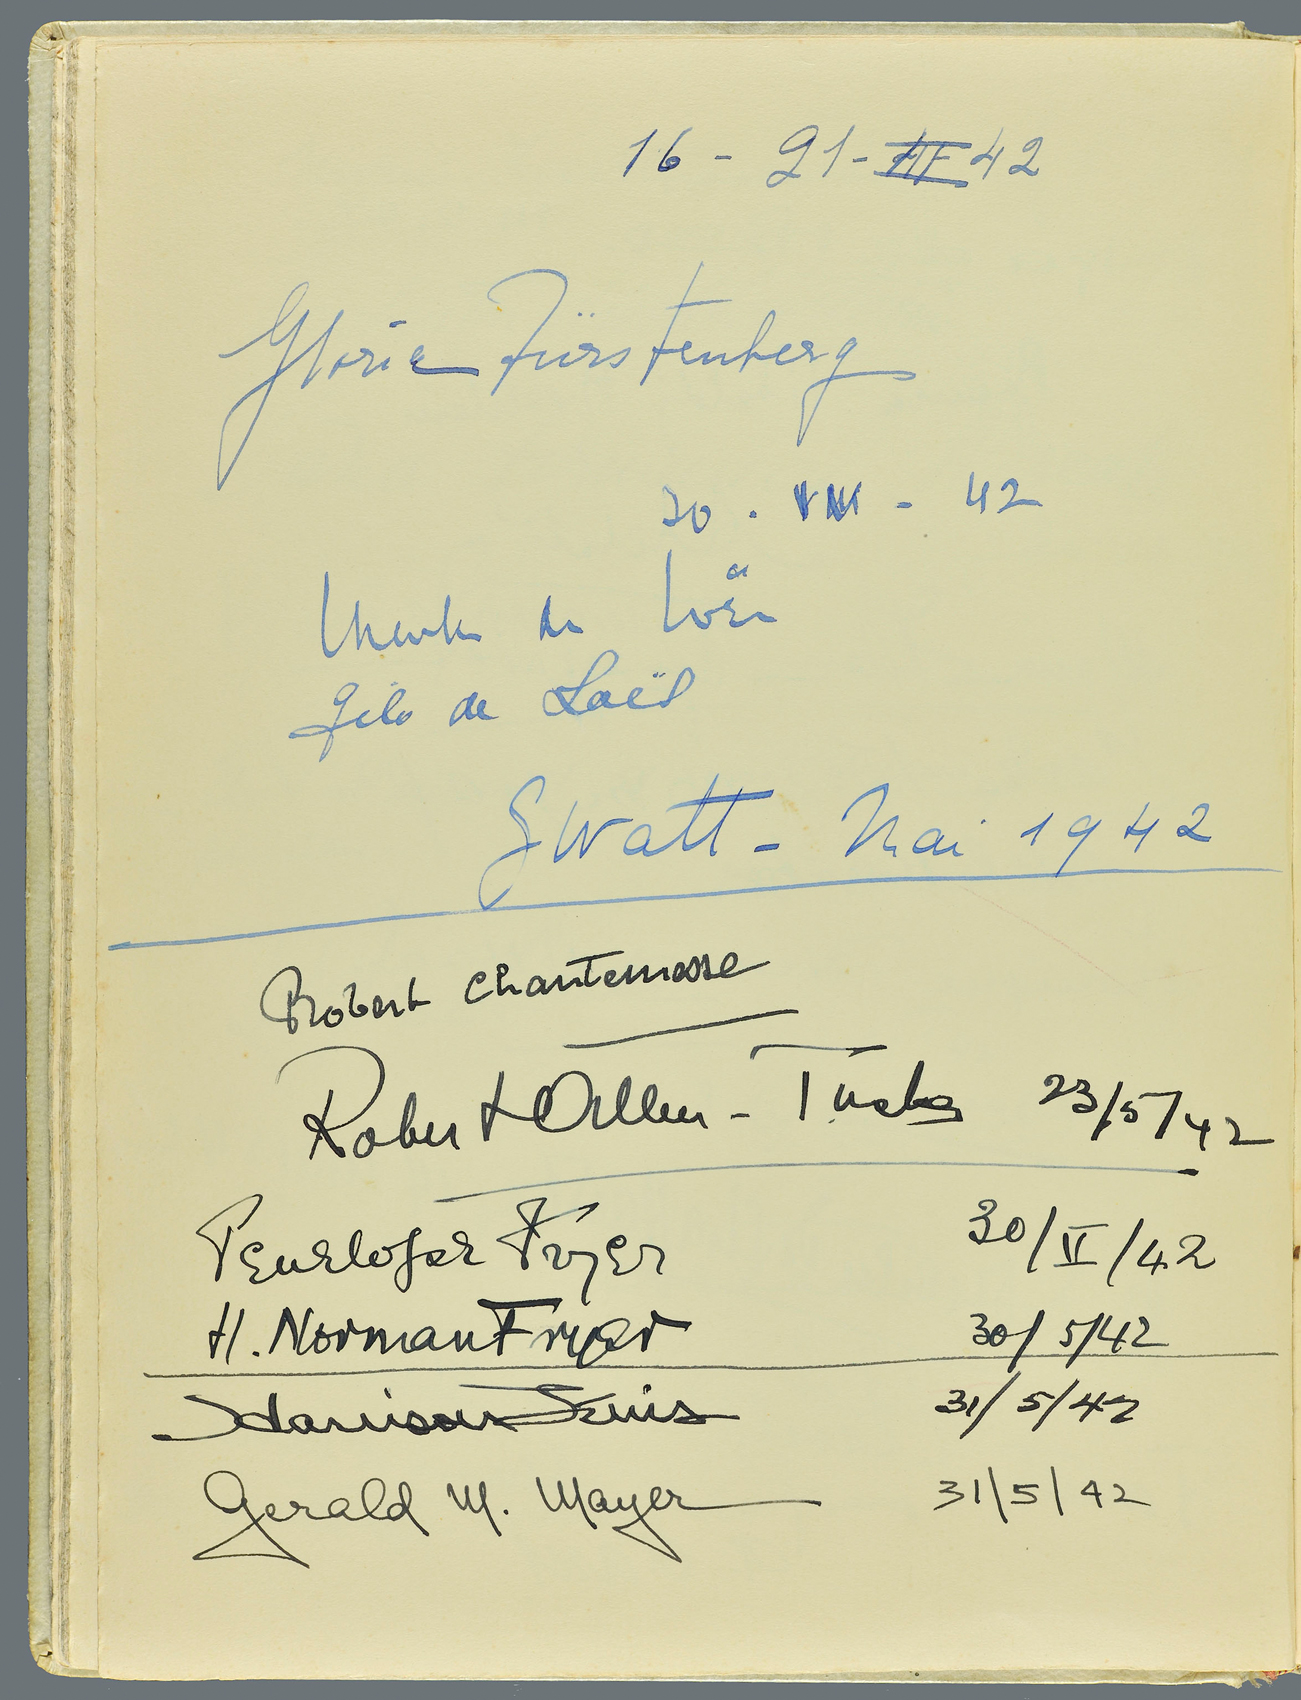 16 - 21 - III 42
Gloria Fürstenberg
30 . VIII - 42
de
de Loës
Gwatt - Mai 1942
Robert Chantemesse
Robert Allen - Tuska 23/5/42
Penelope Fryer 30/V/42
H. Norman Fryer 30/5/42
Harrison Lewis 31/5/42
Gerald M. Mayer 31/5/42